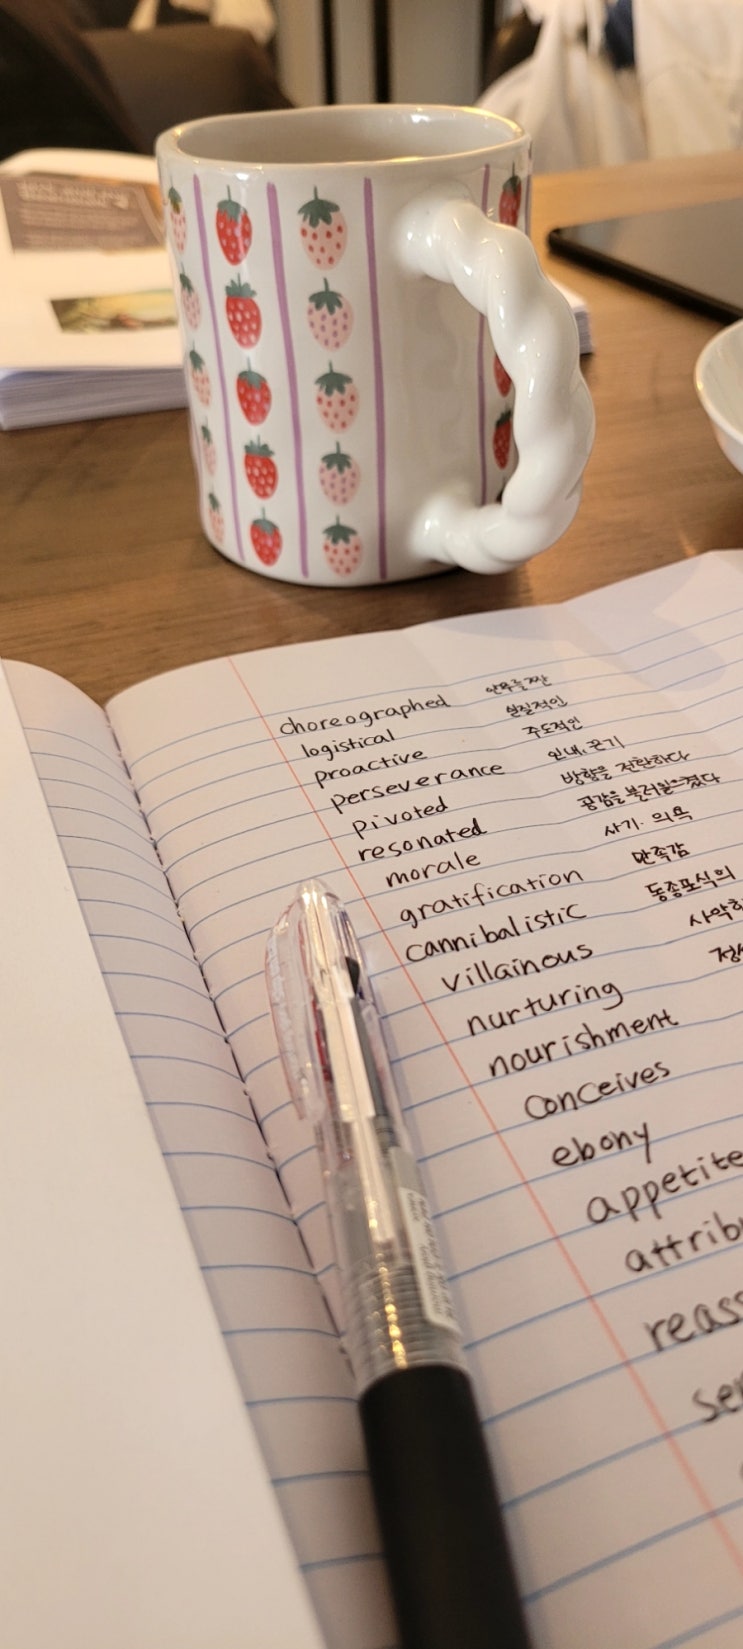 choreographed 안무를 짠
logistical 실질적인
proactive 주도적인
perseverance 인내, 끈기
pivoted 방향을 전환하다
resonated 공감을 불러일으켰다
morale 사기· 의욕
gratification 만족감
cannibalistic 동종포식의
villainous 사악한
nurturing
nourishment
conceives
ebony
appetite
attrib
reass
ser